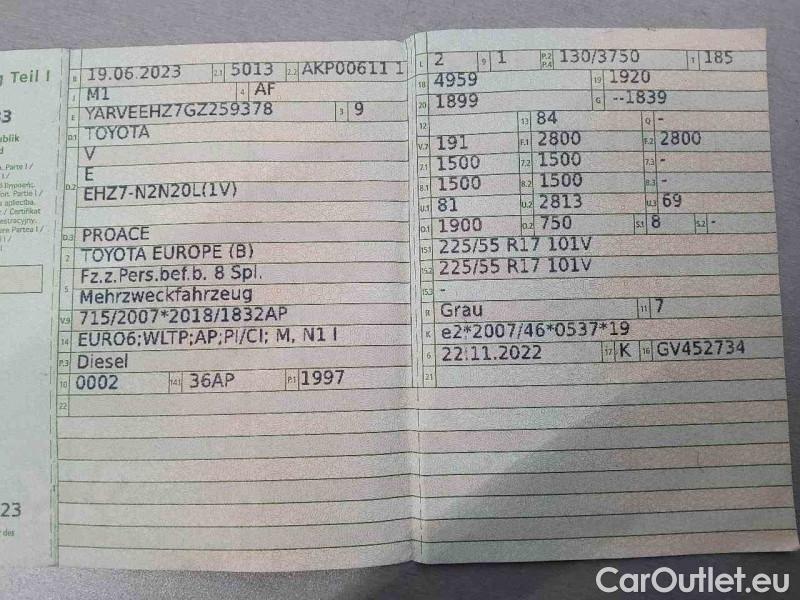 g Teil I
33
publik
d
, Parte I /
Partie I /
apliecība.
/ Certifikat
Partea I /
23
r des
B 19.06.2023 2.1 5013 2.2 AKP00611 1
J M1 4 AF
E YARVEEHZ7GZ259378 3 9
D.1 TOYOTA
V
D.2 E
EHZ7-N2N20L(1V)
D.3 PROACE
2 TOYOTA EUROPE (B)
5 Fz.z.Pers.bef.b. 8 Spl.
Mehrzweckfahrzeug
V.9 715/2007*2018/1832AP
14 EURO6;WLTP;AP;PI/CI; M, N1 I
P.3 Diesel
10 0002 14.1 36AP P.1 1997
22
L 2 9 1 P.2 P.4 130/3750 T 185
18 4959 19 1920
20 1899 G --1839
12 13 84 Q -
V.7 191 F.1 2800 F.2 2800
7.1 1500 7.2 1500 7.3 -
8.1 1500 8.2 1500 8.3 -
U.1 81 U.2 2813 U.3 69
O.1 1900 O.2 750 S.1 8 S.2 -
15.1 225/55 R17 101V
15.2 225/55 R17 101V
15.3 -
R Grau 11 7
K e2*2007/46*0537*19
6 22.11.2022 17 K 16 GV452734
21
CarOutlet.eu